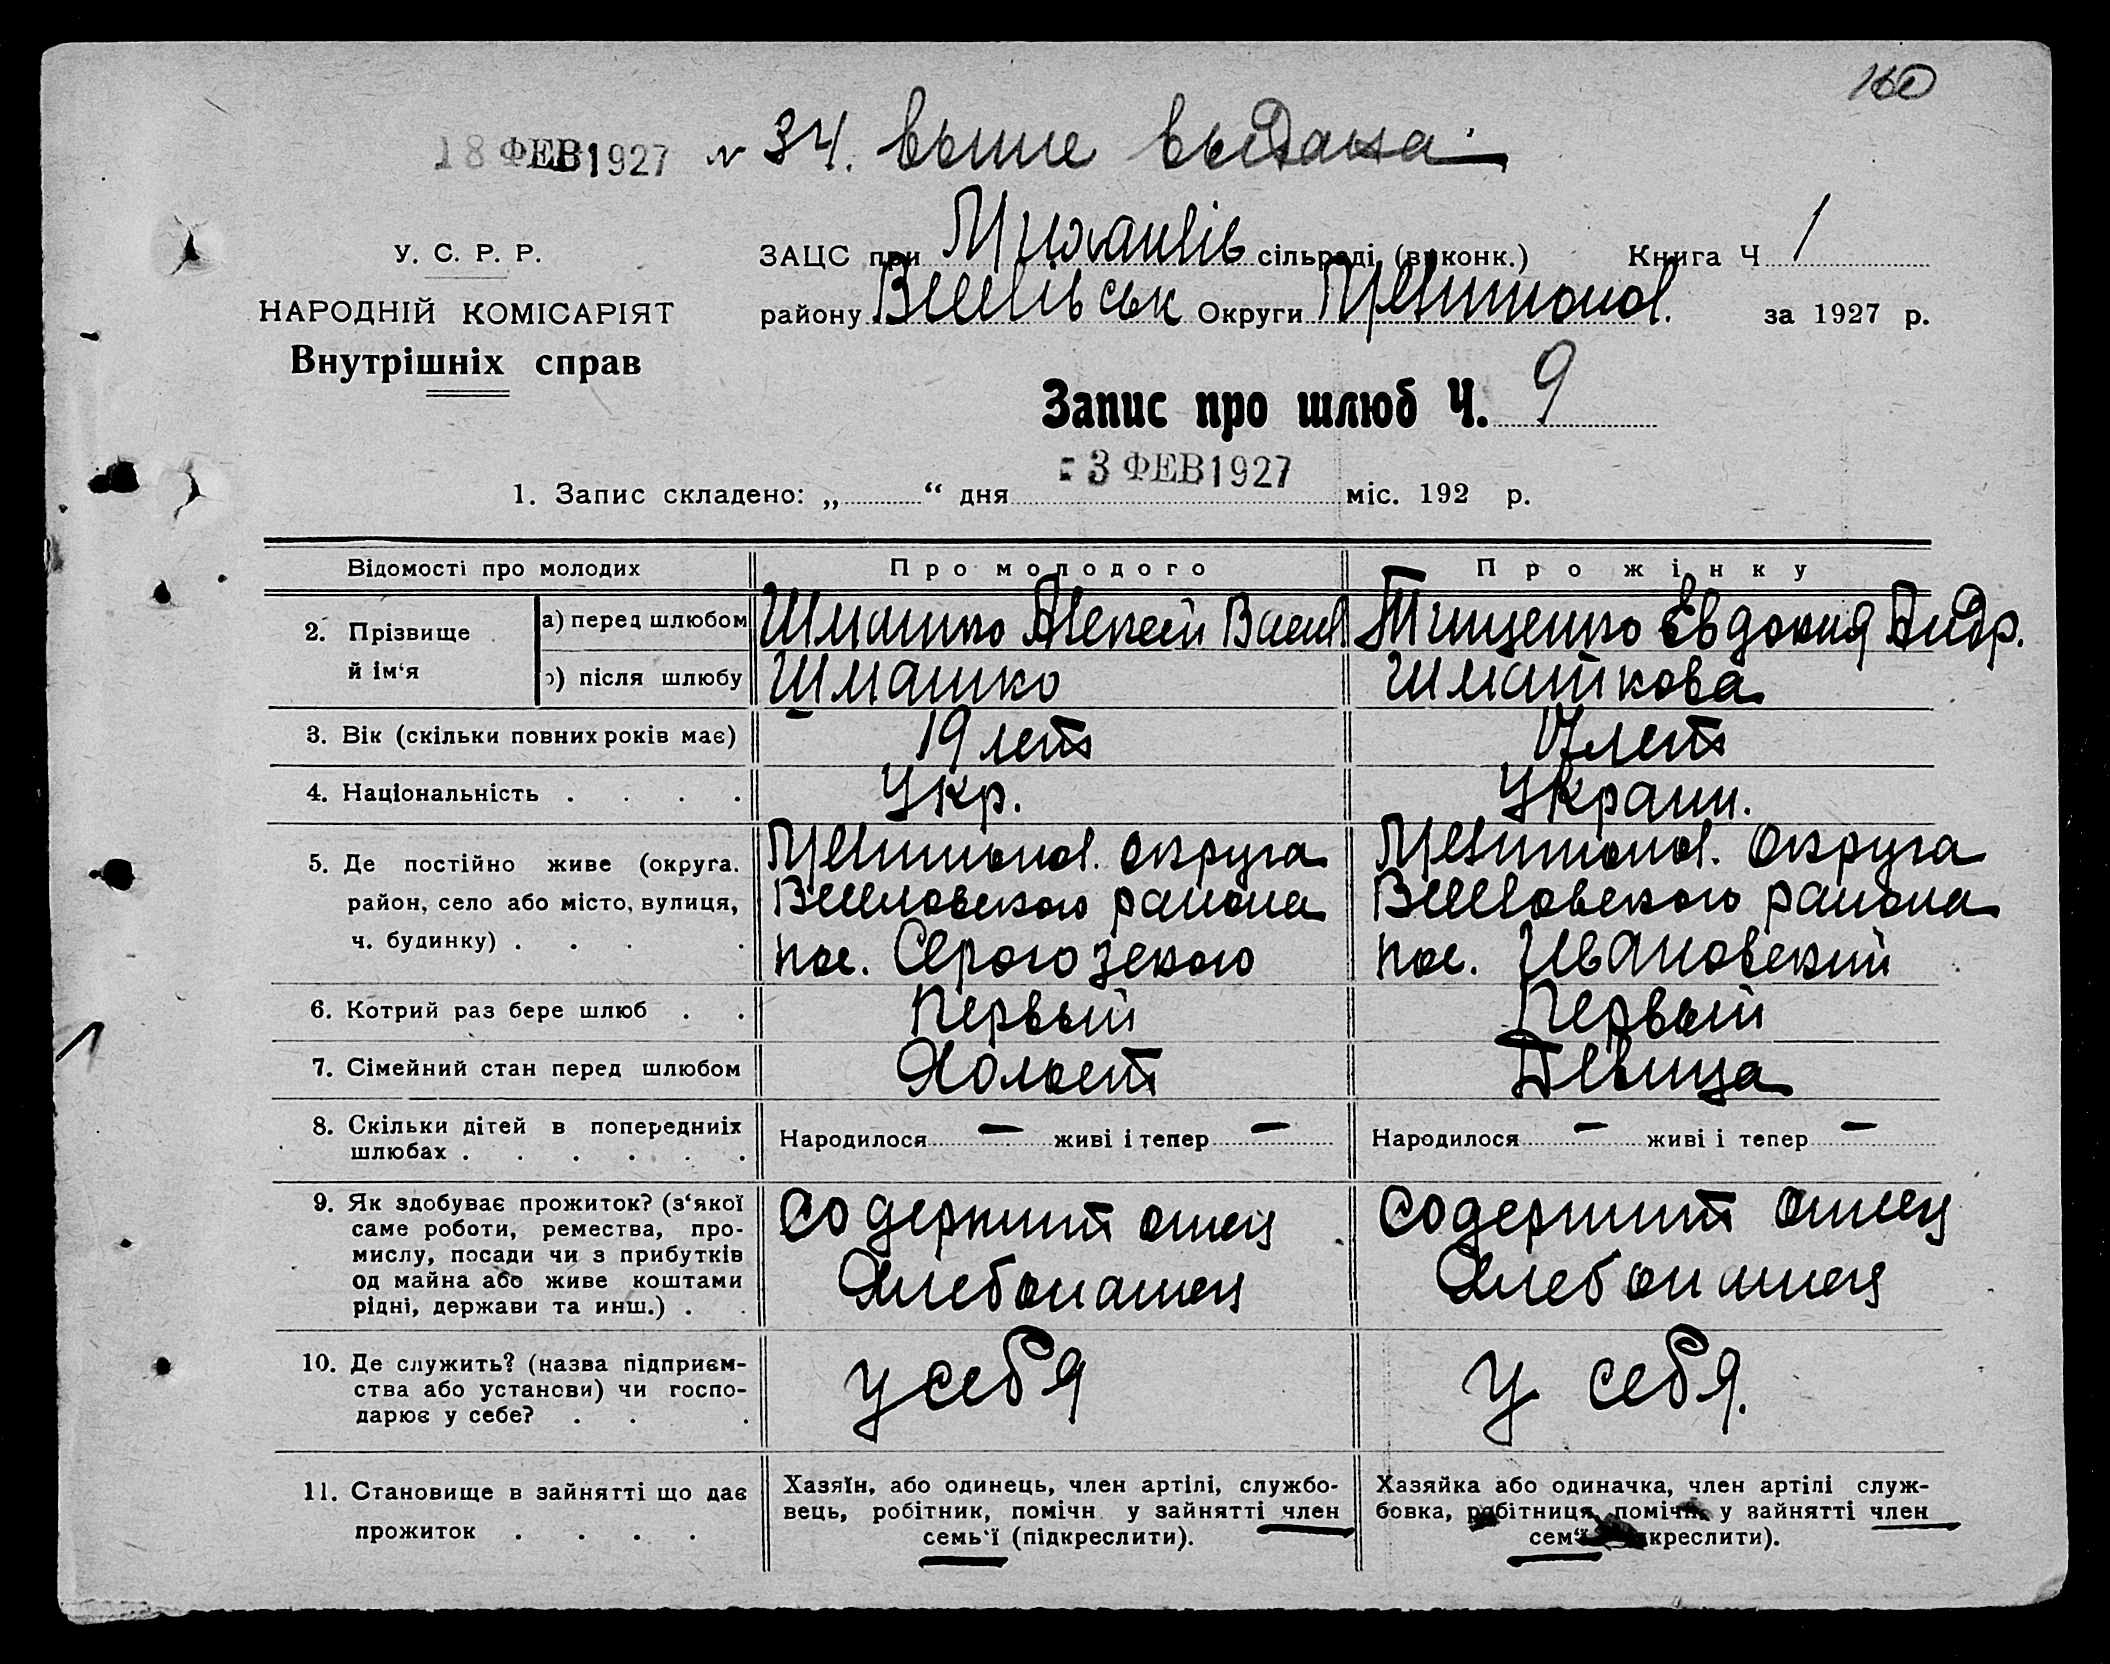 160
18 ФЕВ 1927 № 34. выпис выдана.
У. С. Р. Р.
ЗАЦС при сільраді (виконк.) Книга Ч 1
НАРОДНІЙ КОМІСАРІЯТ
району Округи за 1927 р.
Внутрішніх справ
Запис про шлюб Ч. 9
1. Запис складено: „ “ дня 3 ФЕВ 1927 міс. 192 р.
Відомості про молодих Про молодого Про жінку
2. Прізвище й ім‘я
а) перед шлюбом Шмашко Алексей Васил Тищенко Евдокия Андр.
б) після шлюбу Шмашко Шмашкова
3. Вік (скільки повних років має) 19 лет 17 лет
4. Національність . . . . Укр. Украин.
5. Де постійно живе (округа. округа округа
район, село або місто, вулиця, района района
ч. будинку) . . . . пос. Серогозского пос. Ивановский
6. Котрий раз бере шлюб . . Первый Первый
7. Сімейний стан перед шлюбом Холост Девица
8. Скільки дітей в попередниіх
шлюбах . . . . . . Народилося — живі і тепер — Народилося — живі і тепер —
9. Як здобуває прожиток? (з‘якої
саме роботи, ремества, про- Содержит отец Содержит отец
мислу, посади чи з прибутків
од майна або живе коштами Хлебопашец Хлебопашец
рідні, держави та инш.) . .
10. Де служить? (назва підприєм-
ства або установи) чи госпо- у себя у себя.
дарює у себе? . . .
11. Становище в зайнятті що дає
прожиток . . . .
Хазяїн, або одинець, член артілі, службо-
вець, робітник, помічн у зайнятті член
семь‘ї (підкреслити).
Хазяйка або одиначка, член артілі служ-
бовка, робітниця, помічн. у зайнятті член